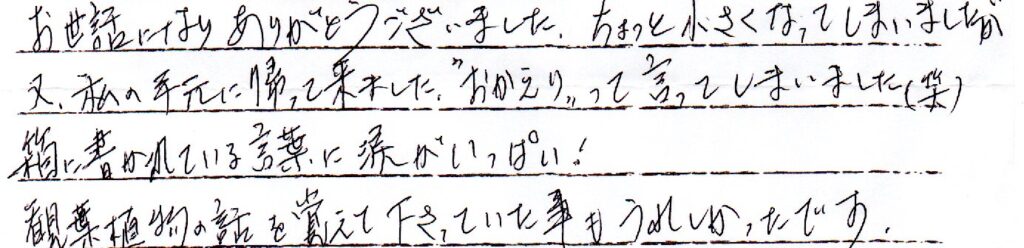 お世話になりありがとうございました。ちょっと小さくなってしまいましたが
又、私の手元に帰って来ました。"おかえり〟って言ってしまいました(笑)
箱に書かれている言葉に涙がいっぱい!
観葉植物の話を覚えて下さっていた事もうれしかったです。